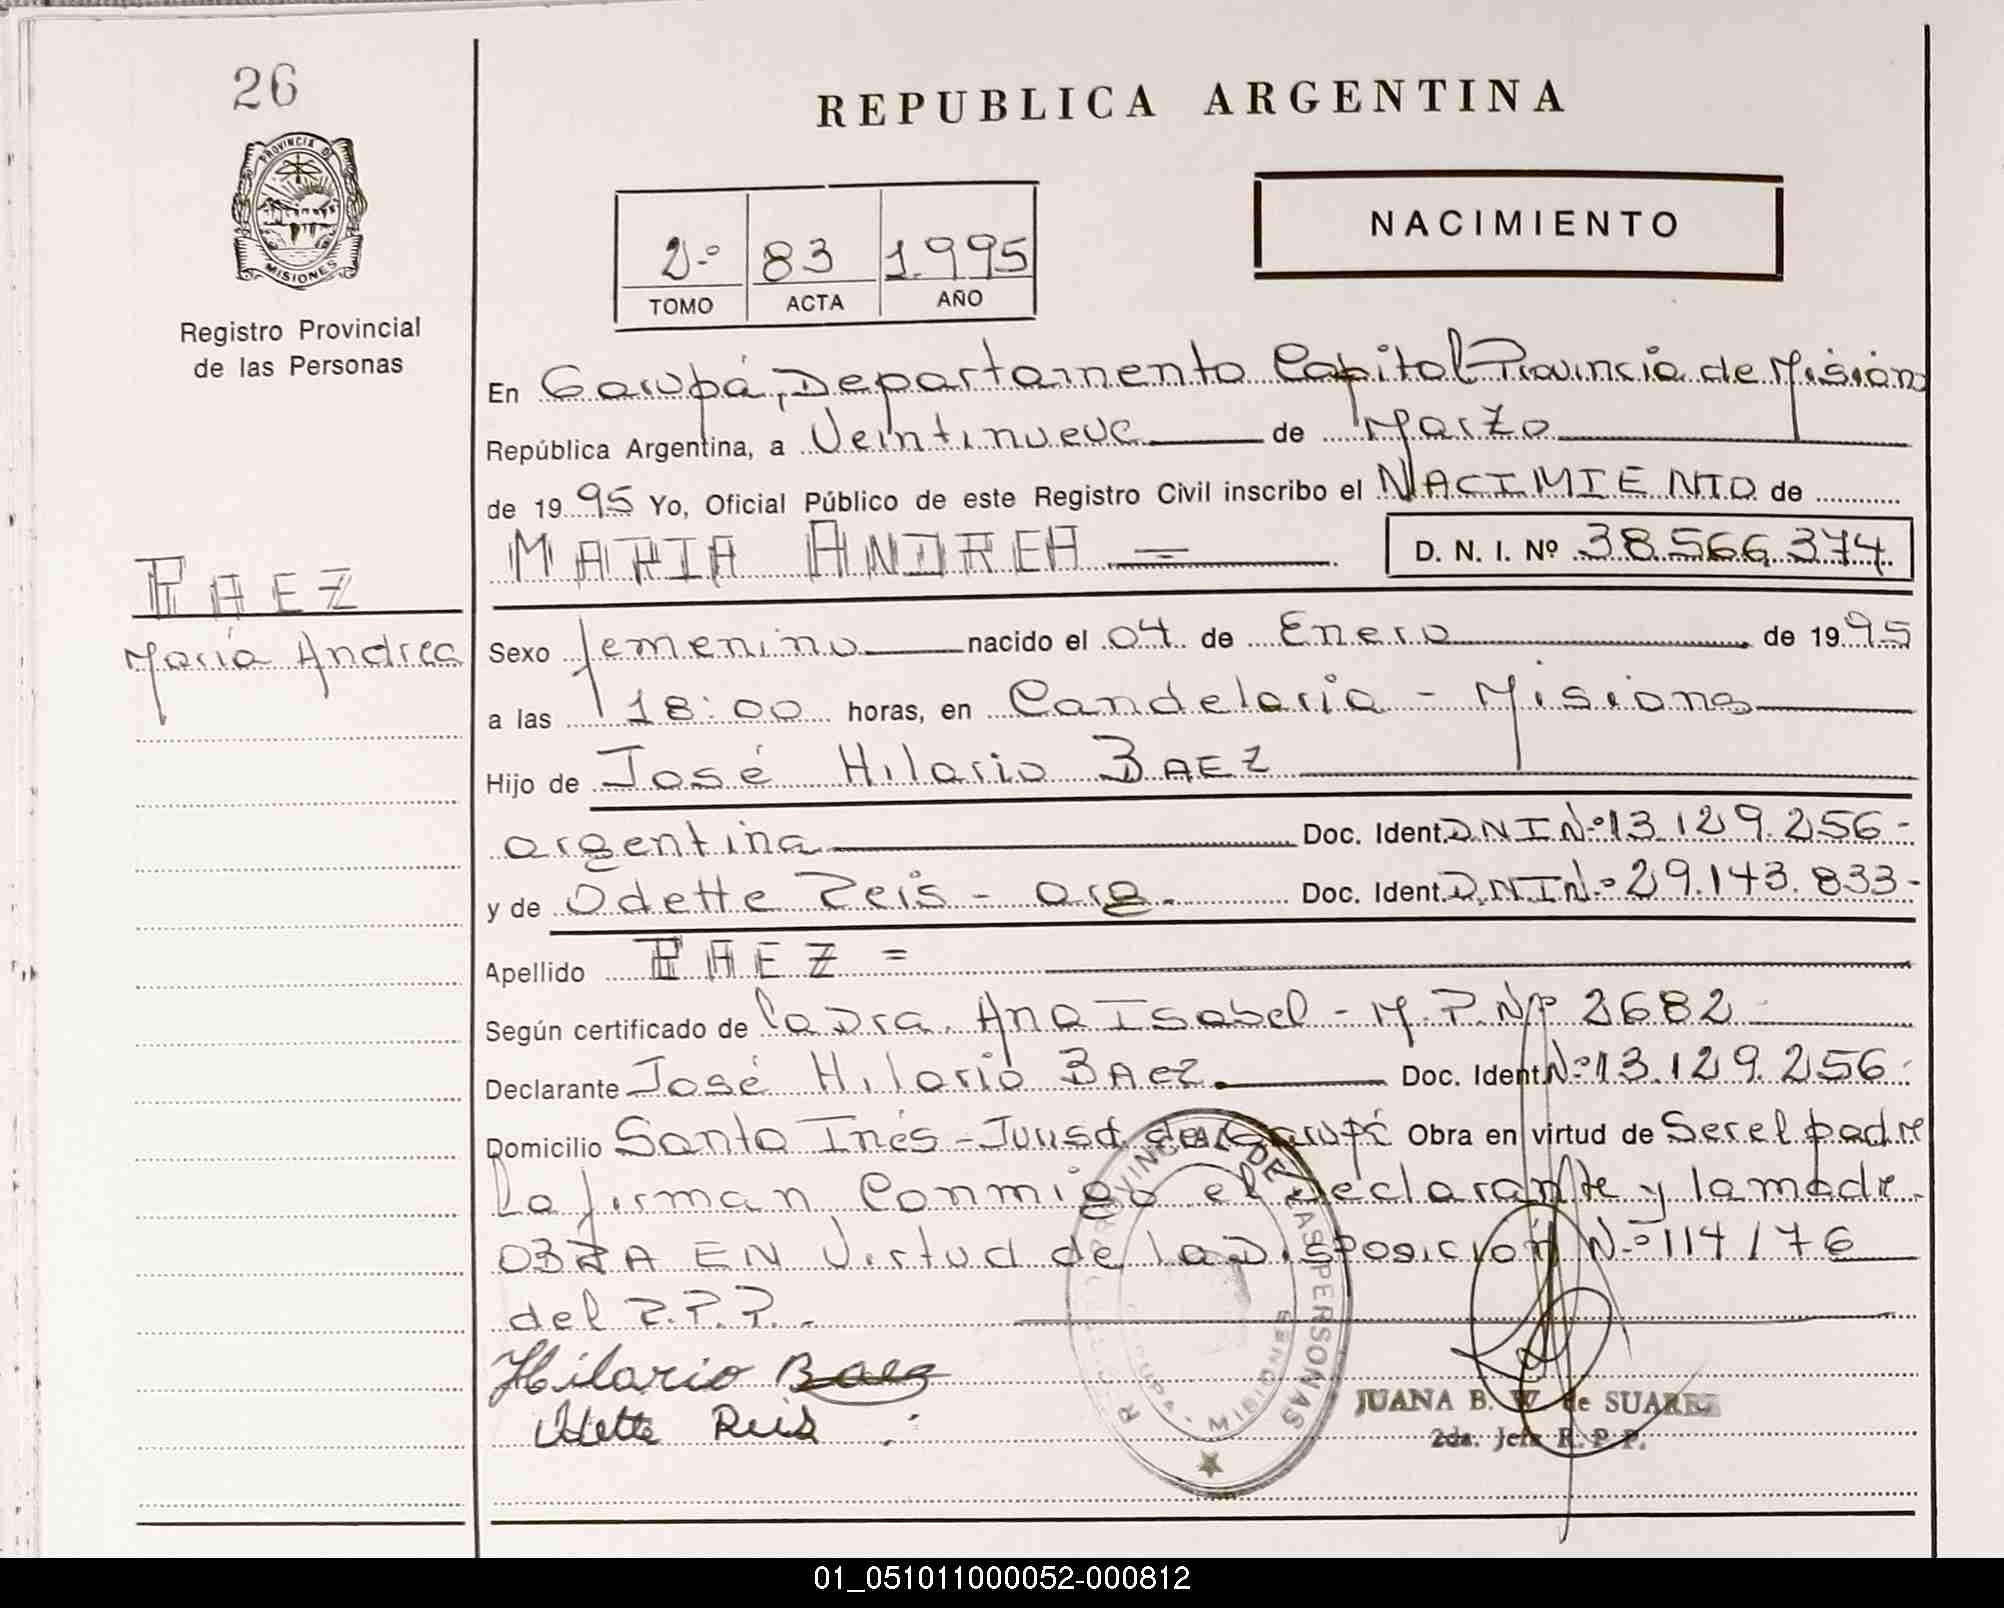 26
PROVINCIA DE
MISIONES
Registro Provincial
de las Personas
REPUBLICA ARGENTINA
NACIMIENTO
2.º 83 1.995
TOMO ACTA AÑO
En Garupá, Departamento Capital Provincia de Mision
República Argentina, a Veintinueve de Marzo
de 1995 Yo, Oficial Público de este Registro Civil inscribo el NACIMIENTO de
MARIA ANDREA = D. N. I. Nº 38.566.374
BAEZ
María Andrea
Sexo femenino nacido el 04 de Enero de 1995
a las 18:00 horas, en Candelaria - Misiones
Hijo de José Hilario BAEZ
argentina Doc. Ident. DNI Nº 13.129.256-
y de Odette Reis - arg. Doc. Ident. D.N.I Nº 29.143.833-
Apellido BAEZ =
Según certificado de la Dra. Ana Isabel - M.P. Nº 2682
Declarante José Hilario BAEZ Doc. Ident. Nº 13.129.256-
Domicilio Santa Inés - Jurisd. de Garupá Obra en virtud de Ser el padre
La firman Conmigo el declarante y la madre.
OBRA EN Virtud de la Disposición Nº 114/76
del R.P.P.
Hilario Baez
Odette Reis
PROVINCIAL DE LAS PERSONAS
MISIONES
JUANA B. W. de SUAREZ
2da. Jefa R. P. P.
01_051011000052-000812